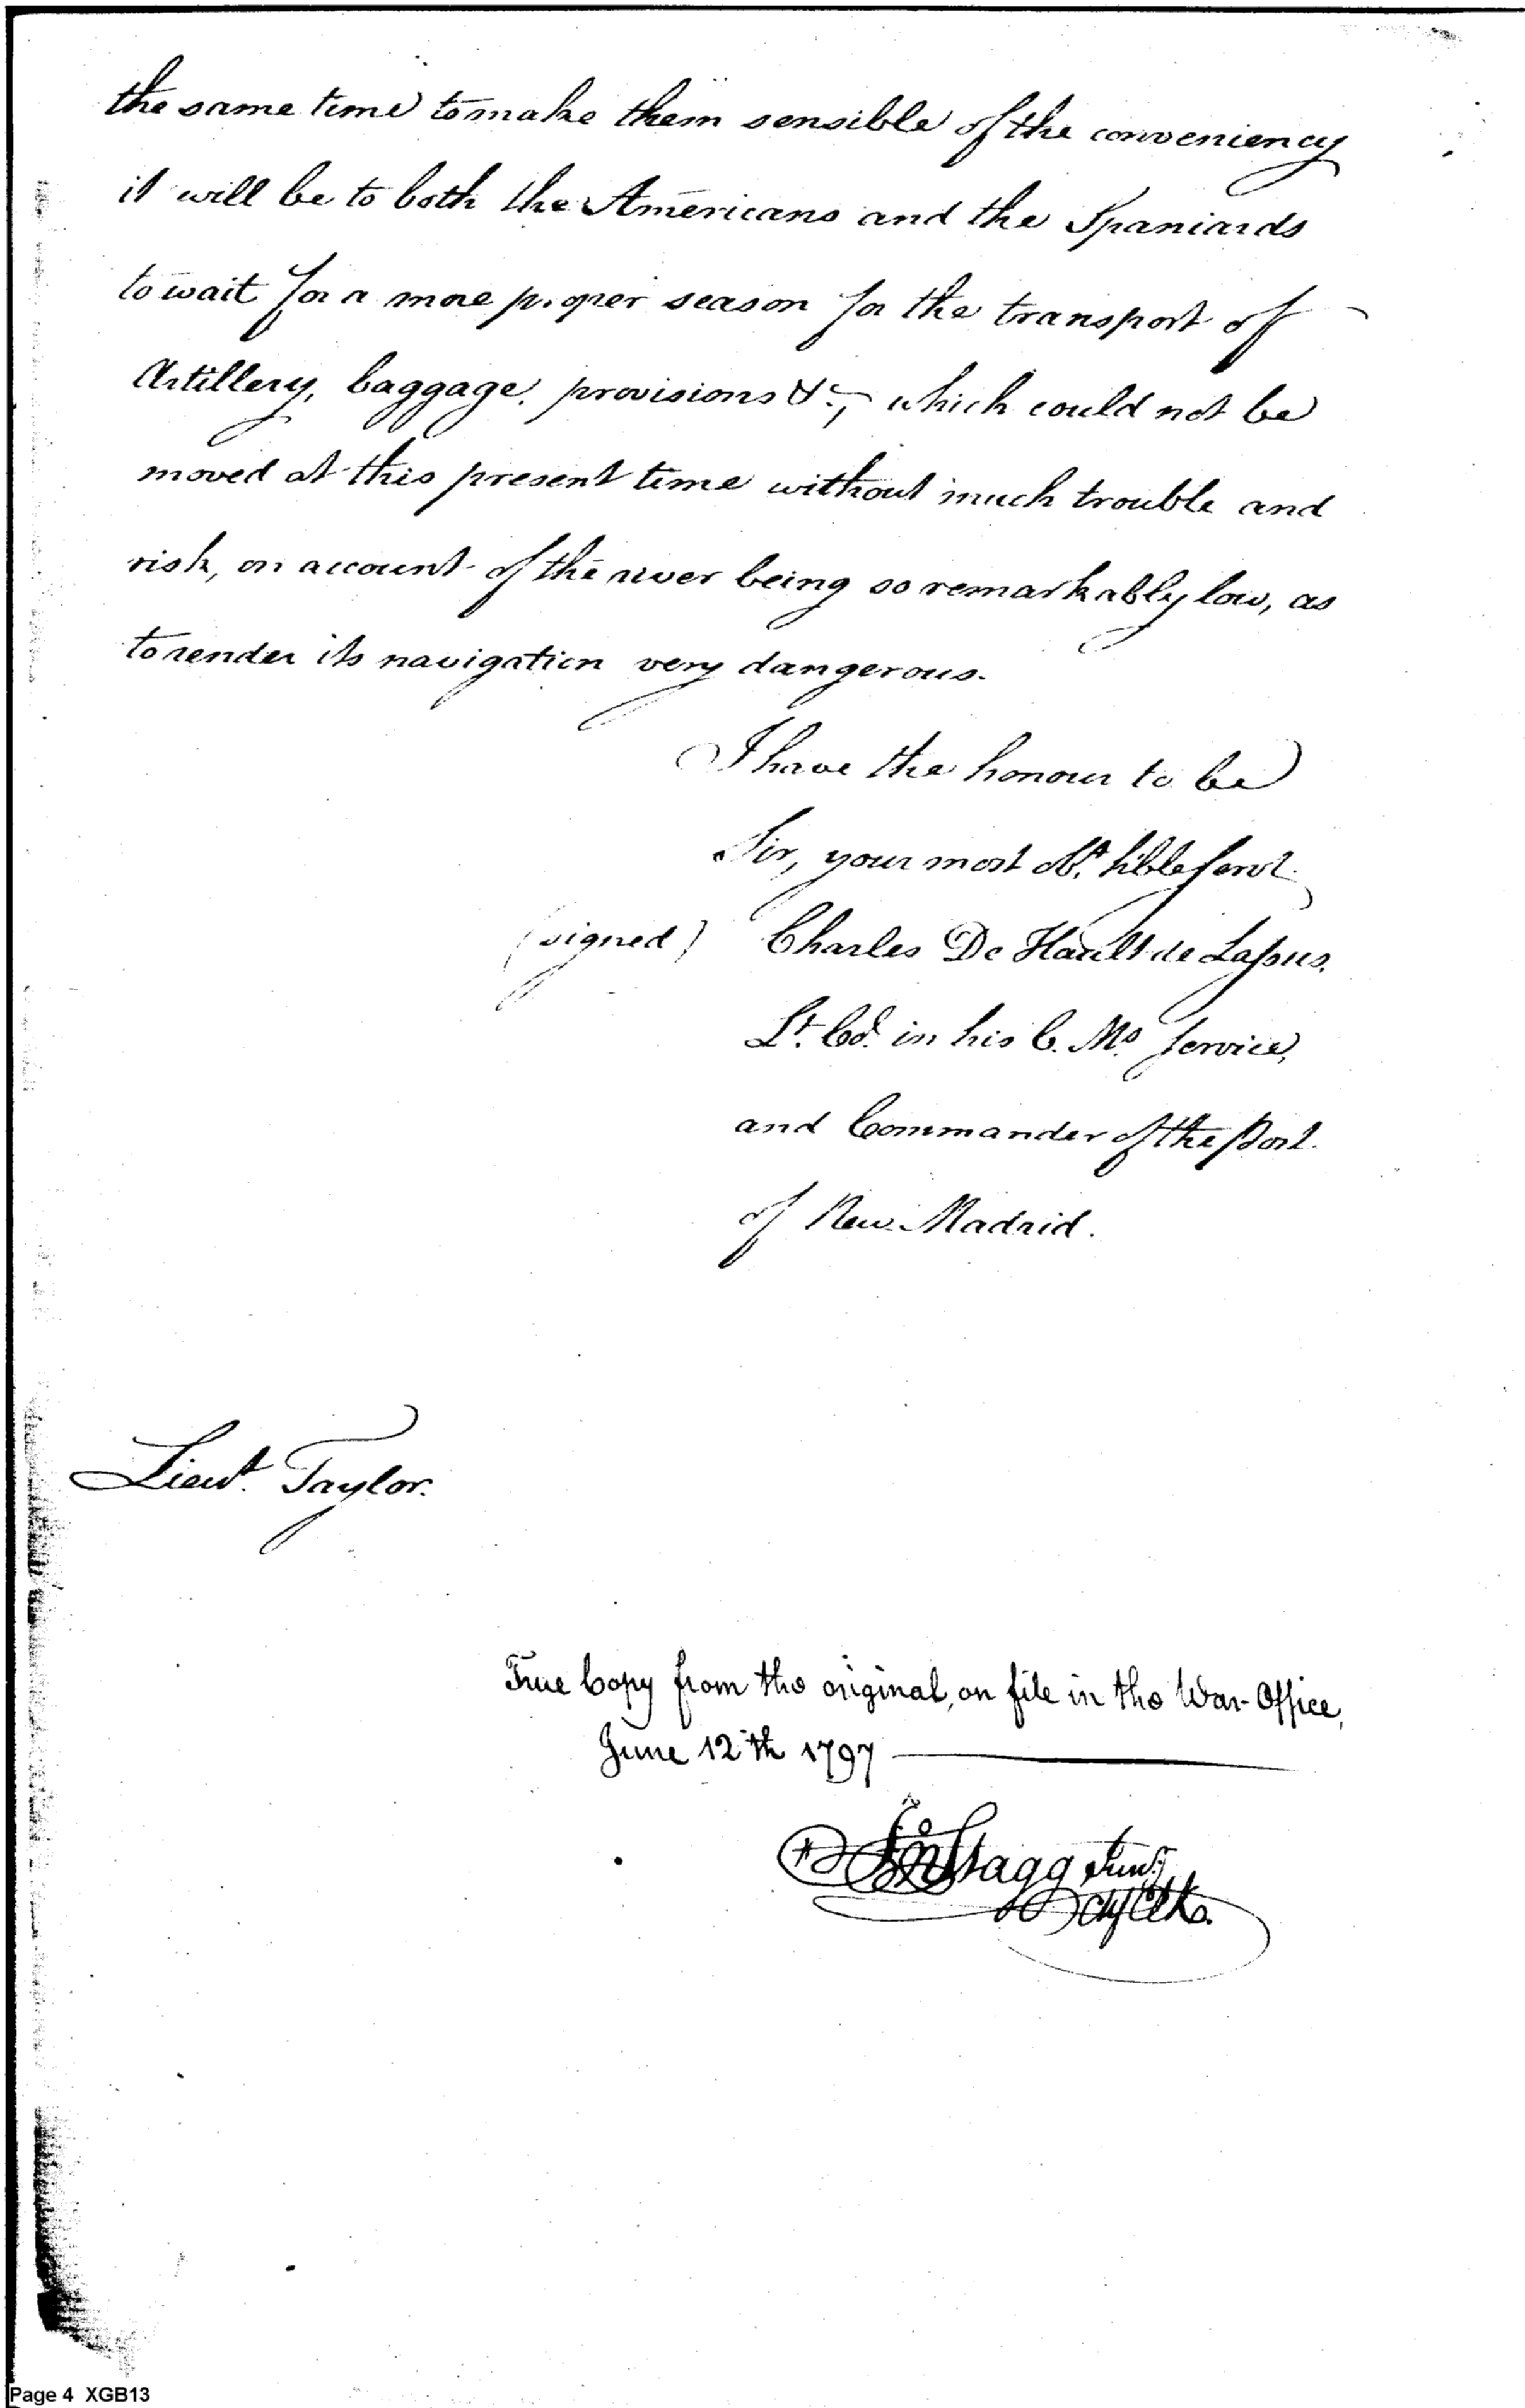 the same time to make them sensible of the conveniency
it will be to both the Americans and the Spaniards
to wait for a more proper season for the transport of
Artillery, baggage, provisions &c, which could not be
moved at this present time without much trouble and
risk, on account of the river being so remarkably low, as
to render its navigation very dangerous.
I have the honour to be
Sir, your most obt. hble servt.
(signed) Charles De Hault de Lassus.
Lt. Col. in his C. Ms. Service,
and Commander of the Post
of New Madrid.
Lieut. Taylor.
True Copy from the original, on file in the War-Office,
June 12th 1797
Jno Stagg Junr
Cly Clk.
Page 4 XGB13